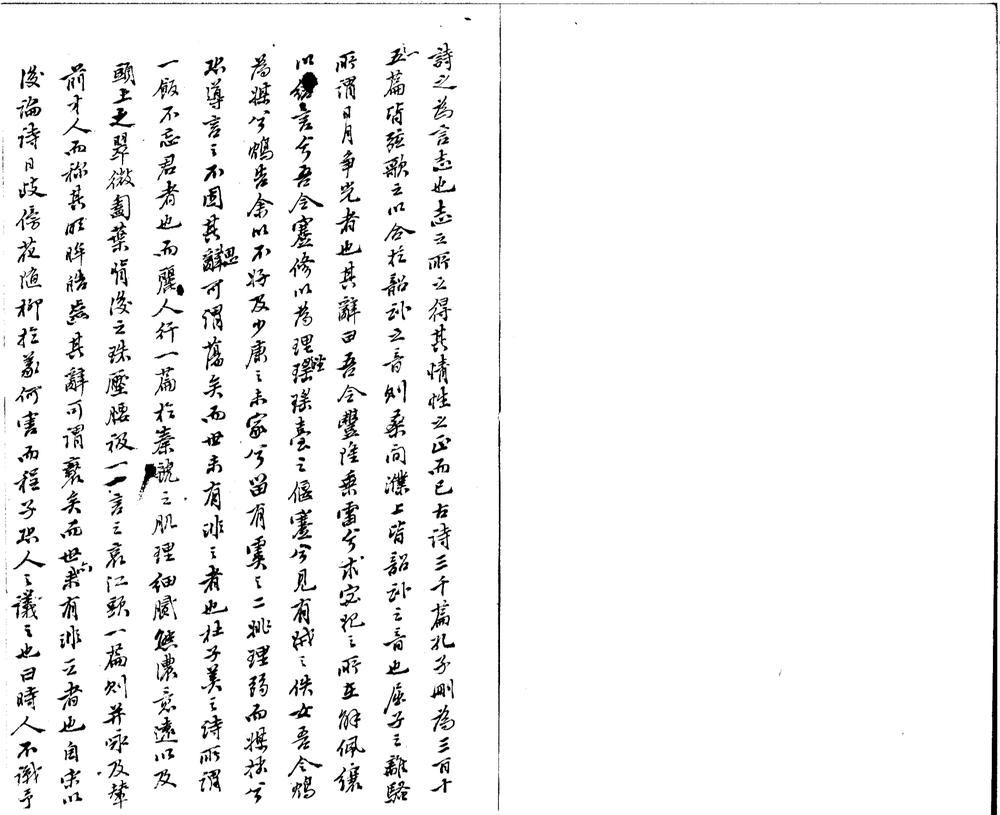 詩之為言志也志之所之得其情性之正而已古詩三千篇孔子刪為三百十
一
五篇皆弦歌之以合於韶武之音則桑間濮上皆韶武之音也屈子之離騷
所謂日月爭光者也其辭曰吾令豐隆乘雲兮求宓妃之所在解佩纕
以結言兮吾令蹇修以為理望瑤臺之偃蹇兮見有娀之佚女吾令鴆
為媒兮鴆告余以不好及少康之未家兮留有虞之二姚理弱而媒拙兮
恐導言之不固其辭思可謂蕩矣而世未有非之者也杜子美之詩所謂
一飯不忘君者也而麗人行一篇於秦虢之肌理細膩態濃意遠以及
頭上之翠微㔩葉背後之珠壓腰衱一一言之哀江頭一篇則并咏及輦
前才人而称其明眸皓齒其辭可謂褻矣而世亦未有非之者也自宋以
後論詩日歧傍花隨柳於義何害而程子恐人之議之也曰時人不識予